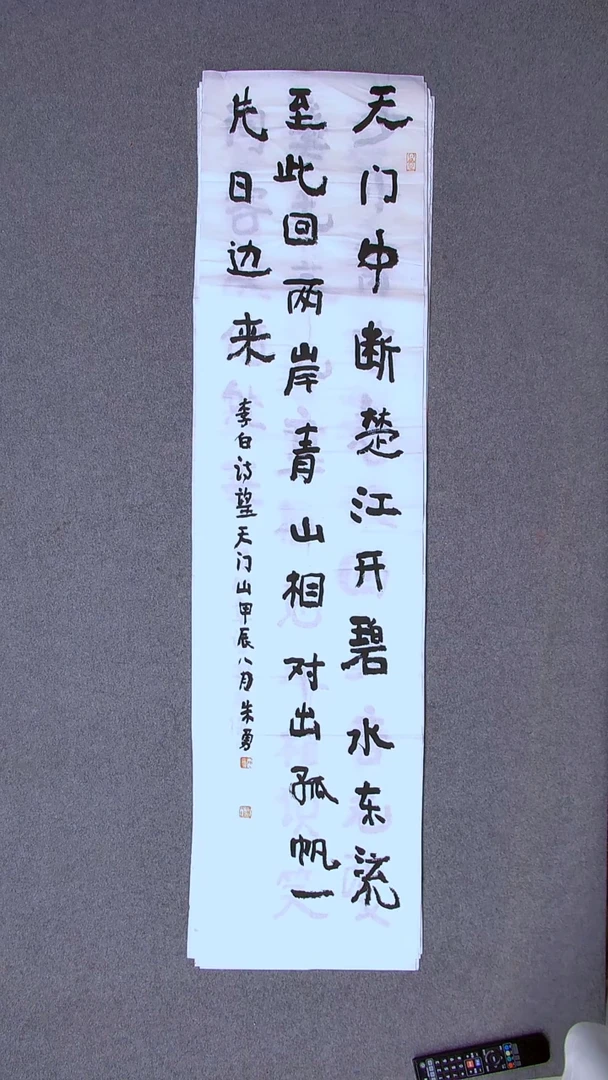 天门中断楚江开碧水东流
至此回两岸青山相对出孤帆一
片日边来
李白诗望天门山甲辰八月朱勇